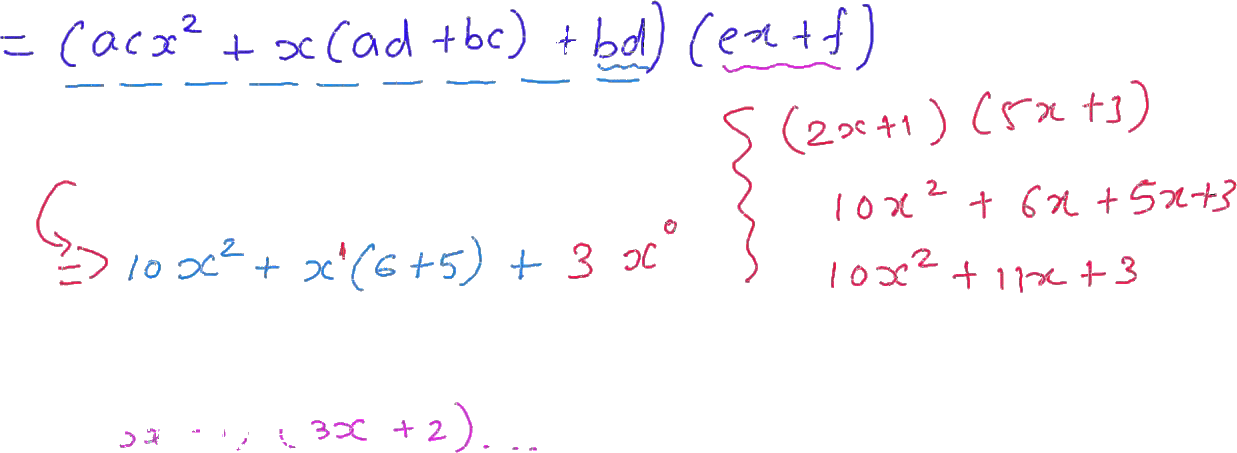 = (acx² + x(ad + bc) + bd) (ex + f)
{ (2x+1) (5x+3)
10x² + 6x + 5x+3
⇒ 10x² + x¹(6+5) + 3x⁰
10x² + 11x + 3
(3x + 2)...